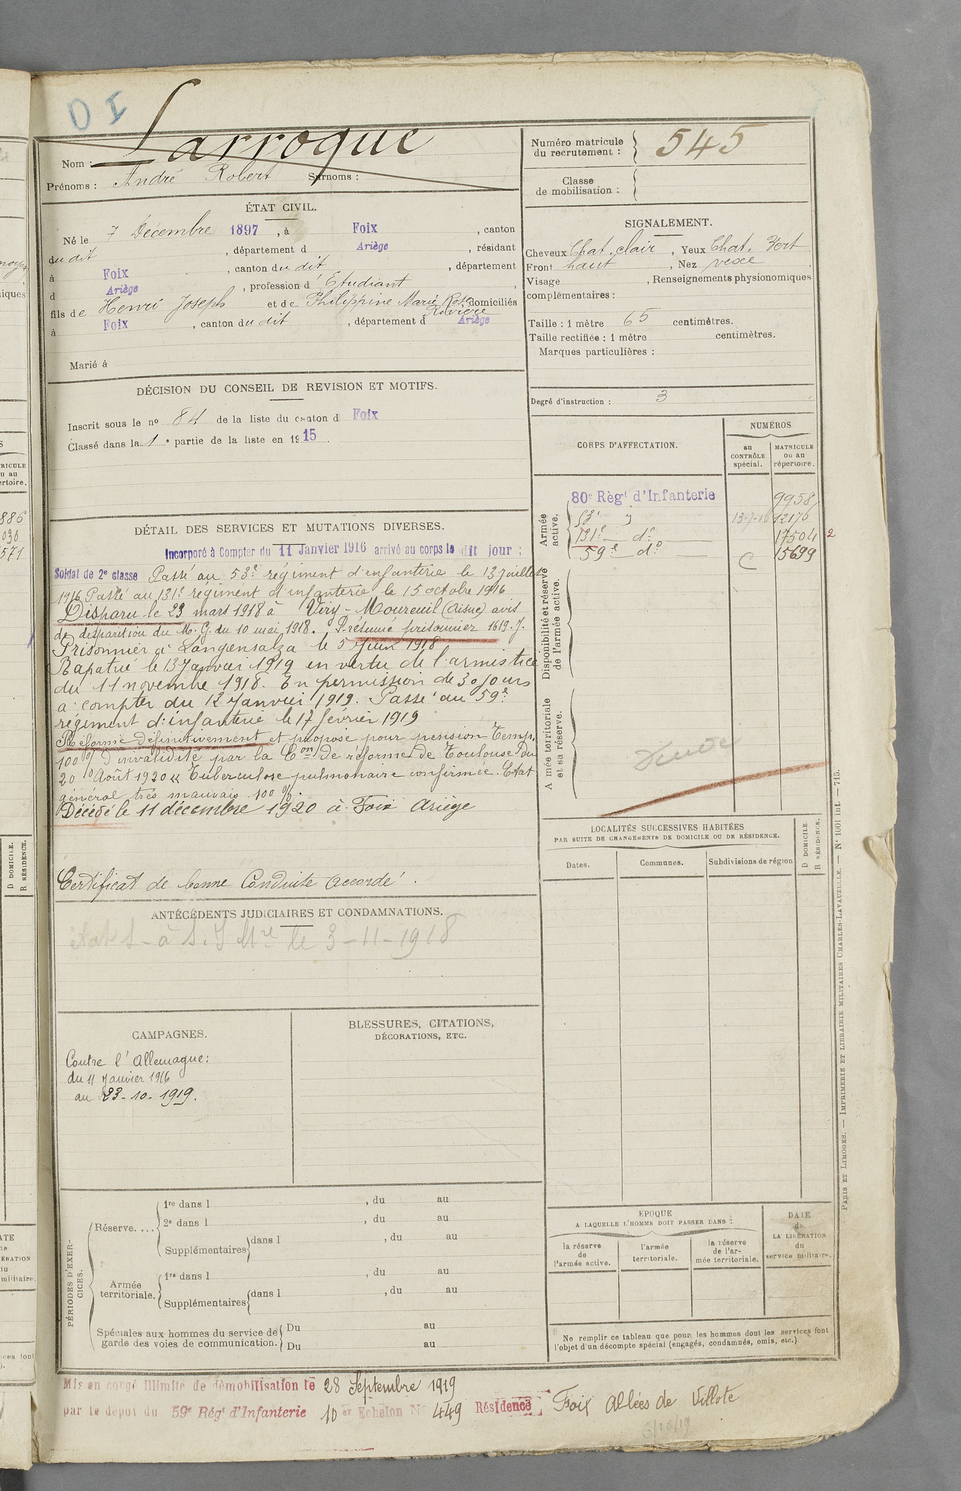 D I
Nom : Larroque
Prénoms : André Robert Surnoms :
Numéro matricule du recrutement : 545
Classe de mobilisation :
ÉTAT CIVIL.
Né le 7 Décembre 1897, à Foix, canton
du dit, département d Ariège, résidant
à Foix, canton du dit, département
d Ariège, profession d'Étudiant,
fils de Henri Joseph et de Philippine Marie Rose Rivière domiciliés
à Foix, canton du dit, département d Ariège
Marié à
SIGNALEMENT.
Cheveux Chat. clair, Yeux Chat. Fort
Front haut, Nez vexe
Visage , Renseignements physionomiques
complémentaires :
Taille : 1 mètre 65 centimètres.
Taille rectifiée : 1 mètre centimètres.
Marques particulières :
Degré d'instruction : 3
DÉCISION DU CONSEIL DE REVISION ET MOTIFS.
Inscrit sous le no 84 de la liste du canton d Foix
Classé dans la 1e partie de la liste en 1915.
CORPS D'AFFECTATION.
NUMÉROS
au CONTRÔLE spécial.
MATRICULE ou au répertoire.
Armée active.
80e Régt d'Infanterie 9958
53e 13-7-16 12170
131e do 17504 2
59e do C 15699
Disponibilité et réserve de l'armée active.
Armée territoriale et sa réserve.
DÉTAIL DES SERVICES ET MUTATIONS DIVERSES.
Incorporé à Compter du 11 Janvier 1916 arrivé au corps le dit jour :
Soldat de 2e classe Passé au 53e régiment d'infanterie le 13 juillet
1916 Passé au 131e régiment d'infanterie le 15 octobre 1916
Disparu le 23 mars 1918 à Viry-Moureuil (Aisne) avis
de disparition du M. G. du 10 mai 1918. Présumé prisonnier 1619. J.
Prisonnier à Langensalza le 5 Juin 1918
Rapatrié le 13 Janvier 1919 en vertu de l'armistice
du 11 novembre 1918. En permission de 30 jours
à compter du 12 Janvier 1919. Passé au 59e
régiment d'infanterie le 17 février 1919
Réformé définitivement et proposé pour pension Temp.
100 % d'invalidité par la Con de réforme de Toulouse du
20 Août 1920 "Tuberculose pulmonaire confirmée. Etat
général très mauvais 100 %.
Décédé le 11 décembre 1920 à Foix Ariège
Certificat de bonne Conduite accordé.
LOCALITÉS SUCCESSIVES HABITÉES
PAR SUITE DE CHANGEMENTS DE DOMICILE OU DE RÉSIDENCE.
Dates.
Communes.
Subdivisions de région
D DOMICILE.
R RÉSIDENCE.
ANTÉCÉDENTS JUDICIAIRES ET CONDAMNATIONS.
le 3-11-1918
CAMPAGNES.
Contre l'Allemagne:
du 11 Janvier 1916
au 23-10-1919.
BLESSURES, CITATIONS,
DÉCORATIONS, ETC.
PÉRIODES D'EXERCICES.
Réserve....
1re dans l , du au
2e dans l , du au
Supplémentaires dans l , du au
Armée territoriale.
1re dans l , du au
Supplémentaires dans l , du au
Spéciales aux hommes du service de garde des voies de communication.
Du au
Du au
EPOQUE
A LAQUELLE L'HOMME DOIT PASSER DANS :
la réserve de l'armée active.
l'armée territoriale.
la réserve de l'armée territoriale.
DATE de LA LIBÉRATION du service militaire.
Ne remplir ce tableau que pour les hommes dont les services font
l'objet d'un décompte spécial (engagés, condamnés, omis, etc.)
Mis en congé illimité de démobilisation le 28 Septembre 1919
par le dépôt du 59e Régt d'Infanterie 10 er Echelon No 449 Résidence Foix Allées de Villote
PARIS ET LIMOGES. — IMPRIMERIE ET LIBRAIRIE MILITAIRES CHARLES-LAVAUZELLE. — No 1001 int. — 715.